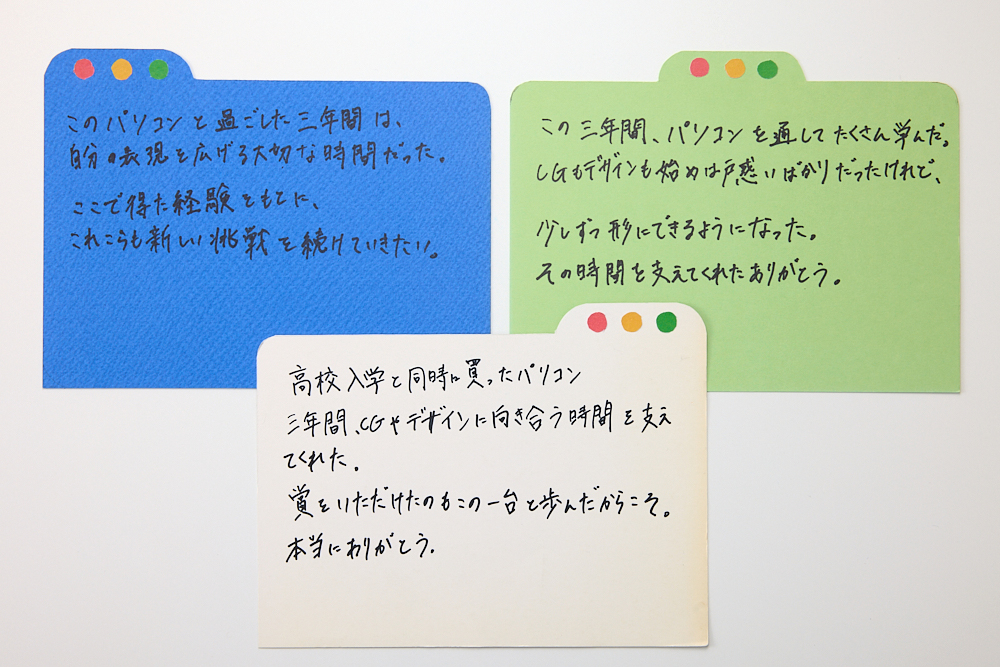 このパソコンと過ごした三年間は、
自分の表現を広げる大切な時間だった。
ここで得た経験をもとに、
これこらも新しい挑戦を続けていきたい。
この三年間、パソコンを通してたくさん学んだ。
CGもデザインも始めは戸惑いばかりだったけれど、
少しずつ形にできるようになった。
その時間を支えてくれたありがとう。
高校入学と同時に買ったパソコン
三年間、CGやデザインに向き合う時間を支え
てくれた。
賞をいただけたのもこの一台と歩んだからこそ。
本当にありがとう.